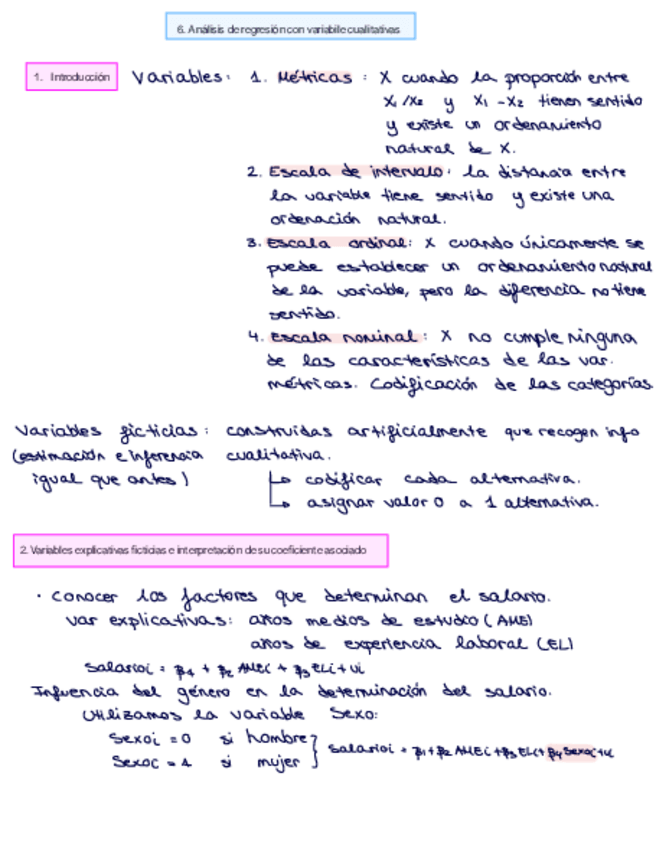 6. Análisis de regresión con variabile cualitativas
1. Introducción Variables: 1. Métricas : X cuando la proporción entre
X₁/X₂ y X₁ - X₂ tienen sentido
y existe un ordenamiento
natural de X.
2. Escala de intervalo: la distancia entre
la variable tiene sentido y existe una
ordenación natural.
3. Escala ordinal: X cuando únicamente se
puede establecer un ordenamiento natural
de la variable, pero la diferencia no tiene
sentido.
4. Escala nominal: X no cumple ninguna
de las características de las var.
métricas. Codificación de las categorías.
Variables ficticias: construidas artificialmente que recogen info
(estimación e inferencia cualitativa.
igual que antes) ↳ codificar cada alternativa.
↳ asignar valor 0 a 1 alternativa.
2. Variables explicativas ficticias e interpretación de su coeficiente asociado
· Conocer los factores que determinan el salario.
var explicativas: años medios de estudio (AME)
años de experiencia laboral (EL)
Salarioi = β1 + β2 AMEi + β3 ELi + ui
Influencia del género en la determinación del salario.
Utilizamos la variable Sexo:
Sexoi = 0 si hombre } Salarioi = β1 + β2 AMEi + β3 ELi + β4 Sexoi + ui
Sexoi = 1 si mujer